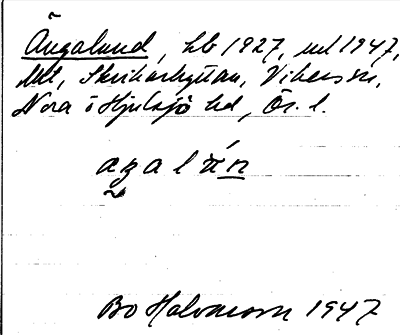 Ängalund, hb 1927, ml 1947,
Mt, Skrikarhyttan, Vikers sn,
Nora o Hjulsjö hd, Ör. l.
aŋalún
Bo Halvarson 1947